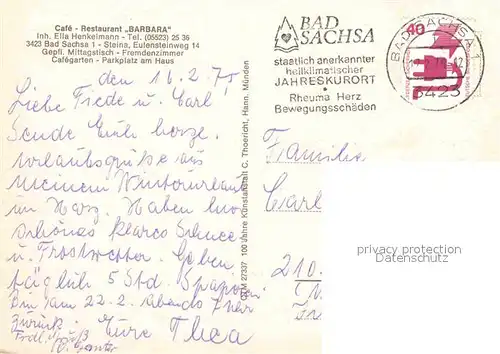 Café - Restaurant „BARBARA"
Inh. Ella Henkelmann - Tel. (05523) 25 36
3423 Bad Sachsa 1 - Steina, Eulensteinweg 14
Gepfl. Mittagstisch - Fremdenzimmer
Cafégarten - Parkplatz am Haus
den 16.2.75
Liebe Friede u. Carl!
Sende Euch herzl.
Urlaubsgrüße aus
meinem Winterurlaub
im Harz. Haben hier
schönes klares Schnee
u. Frostwetter. Gehen
täglich 5 Std. spazieren
Bin am 22.2. abends 7 Uhr
zurück. Eure Thea
Frdl. Grüß
CTM 27337 100 Jahre Kunstanstalt C. Thoericht, Hann. Münden
BAD
SACHSA
staatlich anerkannter
heilklimatischer
JAHRESKURORT
Rheuma Herz
Bewegungsschäden
BAD SACHSA 1
3423
40
Familie
Carl
210
privacy protection
www.oldthing.de